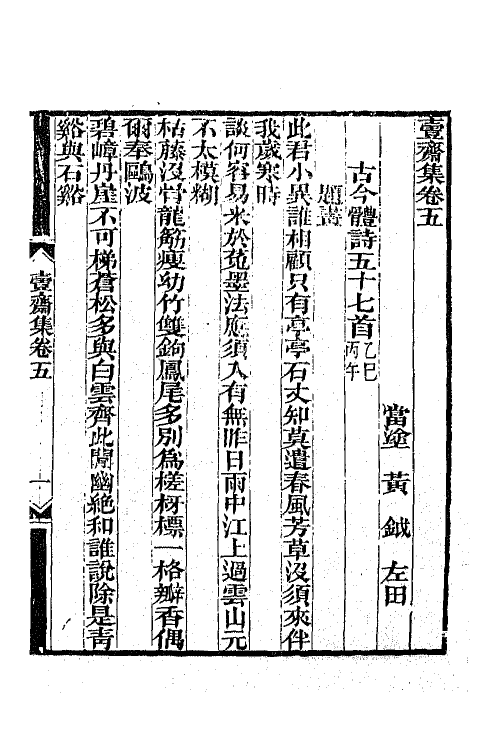 壹齋集卷五
當塗　黃　鉞　左田
古今體詩五十七首乙巳丙午
題畫
此君小異誰相顧只有亭亭石丈知莫遣春風芳草沒須來伴
我歲寒時
談何容易米於菟墨法應須入有無昨日雨中江上過雲山元
不太模糊
枯藤沒骨龍筋瘦幼竹雙鉤鳳尾多別爲槎枒標一格瓣香偶
爾奉鷗波
碧嶂丹崖不可梯蒼松多與白雲齊此間幽絶和誰說除是靑
谿與石谿
壹齋集卷五
一